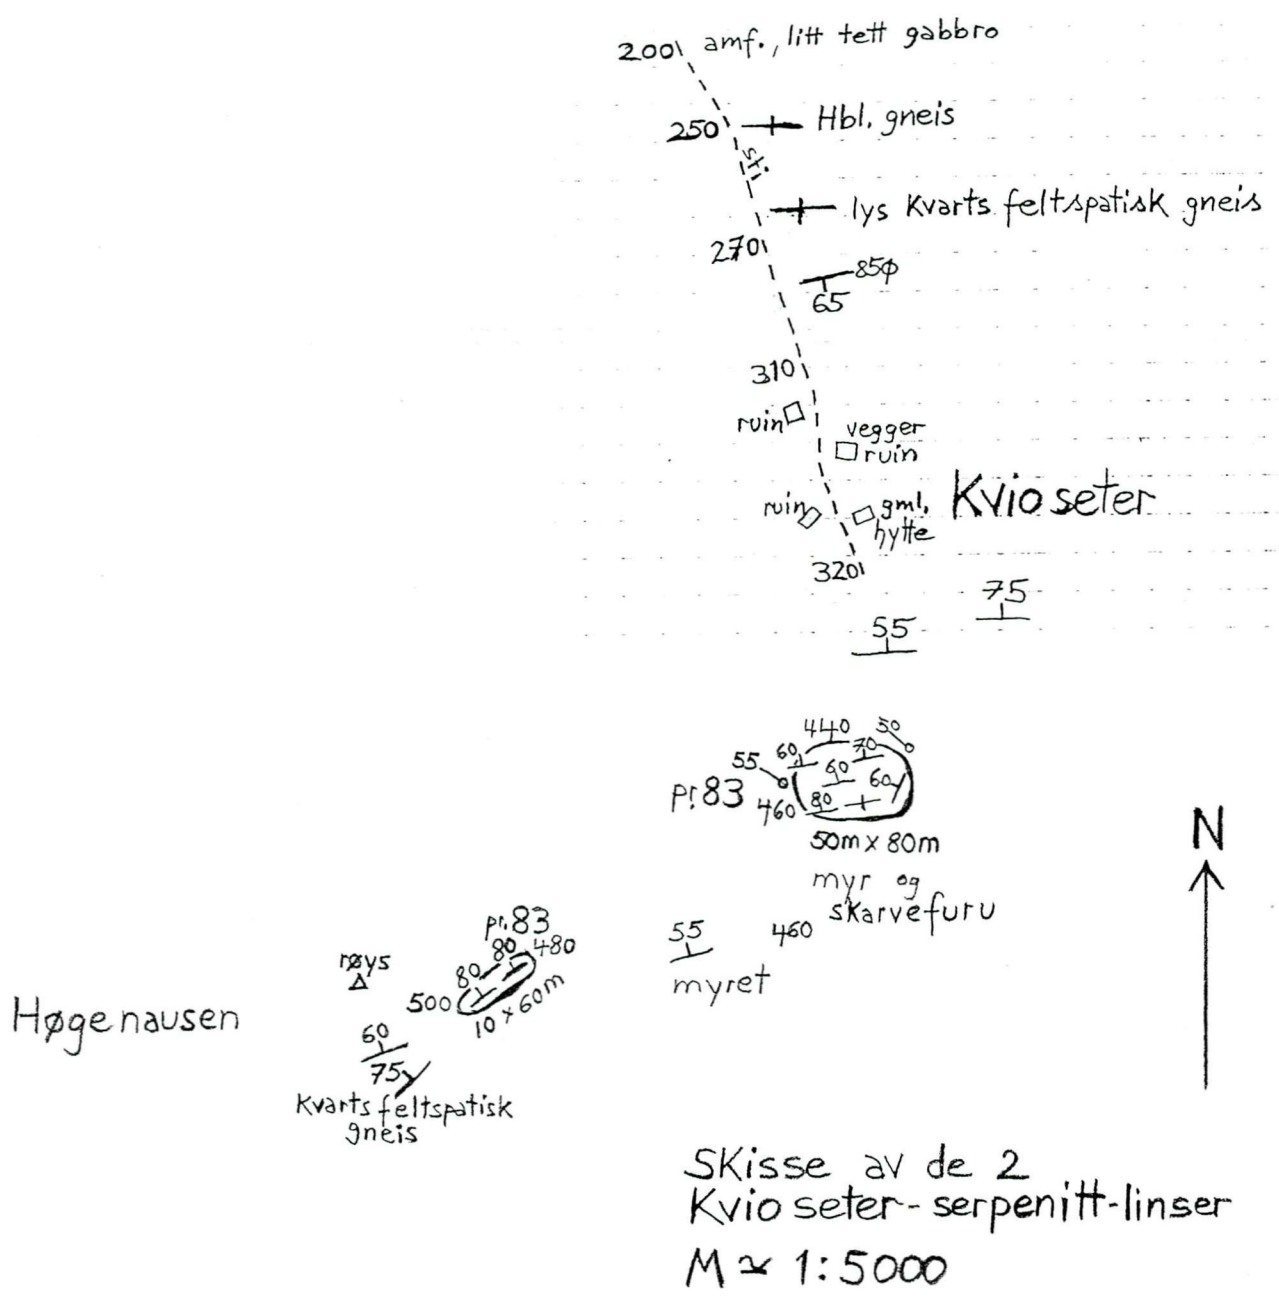 200 amf., litt tett gabbro
250 Hbl. gneis
sti
lys Kvarts feltspatisk gneis
270
85φ
65
310
ruin
vegger
ruin
ruin
gml.
hytte
Kvio seter
320
75
55
440
50
60
70
55
60
60
pr. 83
460
80
50m x 80m
myr og
skarvefuru
55
460
myret
pr. 83
80
480
80
500
10 x 60m
røys
Høgenausen
60
75
Kvarts feltspatisk
gneis
N
Skisse av de 2
Kvio seter-serpenitt-linser
M ≃ 1:5000